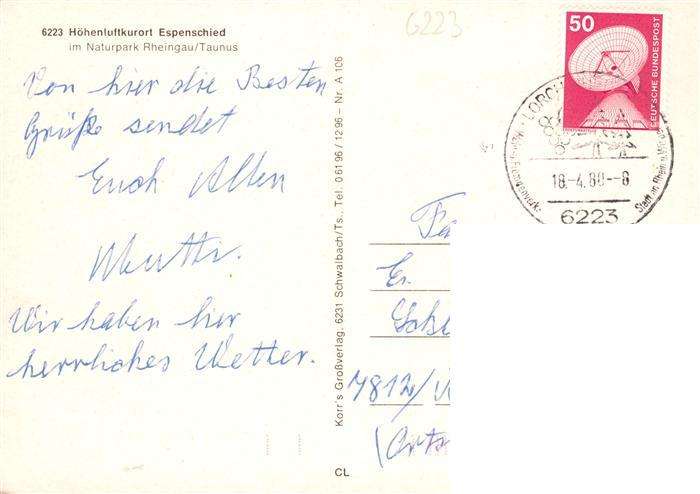 6223 Höhenluftkurort Espenschied
im Naturpark Rheingau/Taunus
Von hier die Besten
Grüße sendet
Euch Allen
Mutti.
Wir haben hier
herrliches Wetter.
Korr's Großverlag, 6231 Schwalbach/Ts., Tel. 0 61 96 / 12 96 - Nr. A 106
CL
6223
50
DEUTSCHE BUNDESPOST
LORCH
18.-4.80--8
6223
Stadt an Rhein u.
Fa
Er.
7812/
(Orts